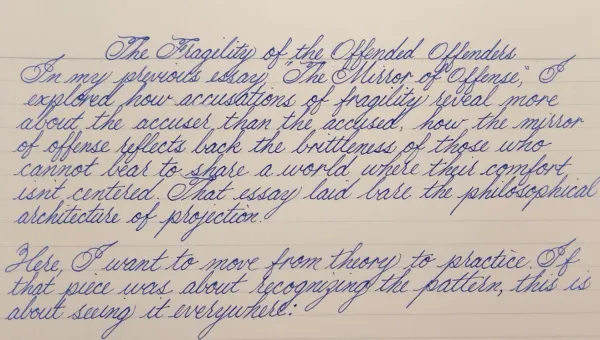 The Fragility of the Offended Offenders
In my previous essay, "The Mirror of Offense," I
explored how accusations of fragility reveal more
about the accuser than the accused, how the mirror
of offense reflects back the brittleness of those who
cannot bear to share a world where their comfort
isn't centered. That essay laid bare the philosophical
architecture of projection.
Here, I want to move from theory to practice. If
that piece was about recognizing the pattern, this is
about seeing it everywhere: